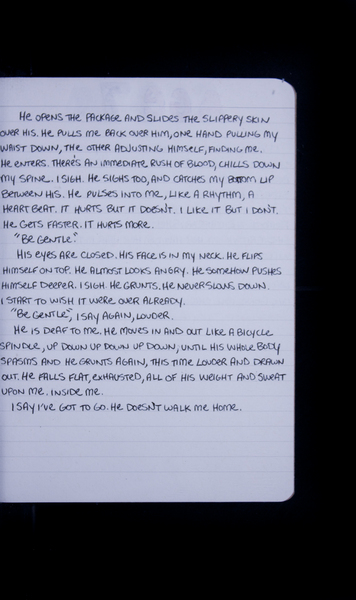 HE OPENS THE PACKAGE AND SLIDES THE SLIPPERY SKIN
OVER HIS. HE PULLS ME BACK OVER HIM, ONE HAND PULLING MY
WAIST DOWN, THE OTHER ADJUSTING HIMSELF, FINDING ME.
HE ENTERS. THERE'S AN IMMEDIATE RUSH OF BLOOD, CHILLS DOWN
MY SPINE. I SIGH. HE SIGHS TOO, AND CATCHES MY BOTTOM LIP
BETWEEN HIS. HE PULSES INTO ME, LIKE A RHYTHM, A
HEART BEAT. IT HURTS BUT IT DOESN'T. I LIKE IT BUT I DON'T.
HE GETS FASTER. IT HURTS MORE.
"BE GENTLE."
HIS EYES ARE CLOSED. HIS FACE IS IN MY NECK. HE FLIPS
HIMSELF ON TOP. HE ALMOST LOOKS ANGRY. HE SOMEHOW PUSHES
HIMSELF DEEPER. I SIGH. HE GRUNTS. HE NEVER SLOWS DOWN.
I START TO WISH IT WERE OVER ALREADY.
"BE GENTLE," I SAY AGAIN, LOUDER.
HE IS DEAF TO ME. HE MOVES IN AND OUT LIKE A BICYCLE
SPINDLE, UP DOWN UP DOWN UP DOWN, UNTIL HIS WHOLE BODY
SPASMS AND HE GRUNTS AGAIN, THIS TIME LOUDER AND DRAWN
OUT. HE FALLS FLAT, EXHAUSTED, ALL OF HIS WEIGHT AND SWEAT
UPON ME. INSIDE ME.
I SAY I'VE GOT TO GO. HE DOESN'T WALK ME HOME.